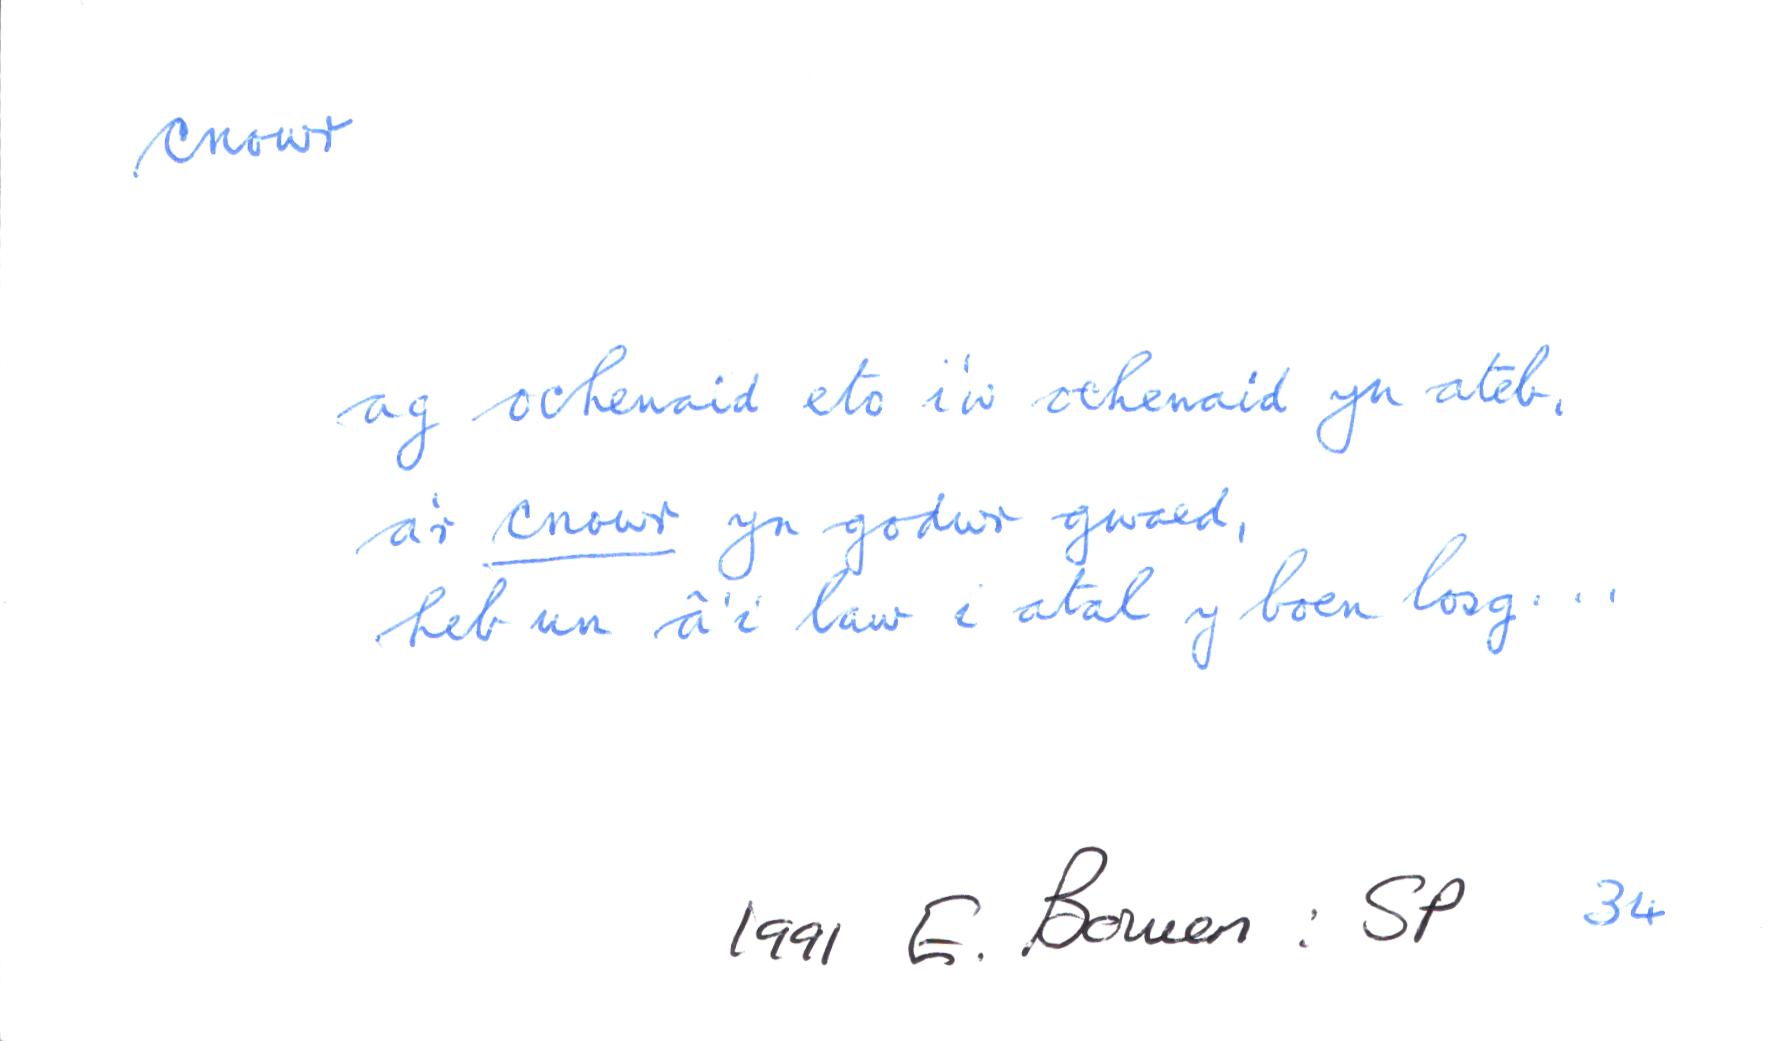 cnowr
ag ochenaid eto i'w ochenaid yn ateb,
a'r cnowr yn godwr gwaed,
heb un â'i law i atal y boen losg...
1991 E. Bowen : SP 34